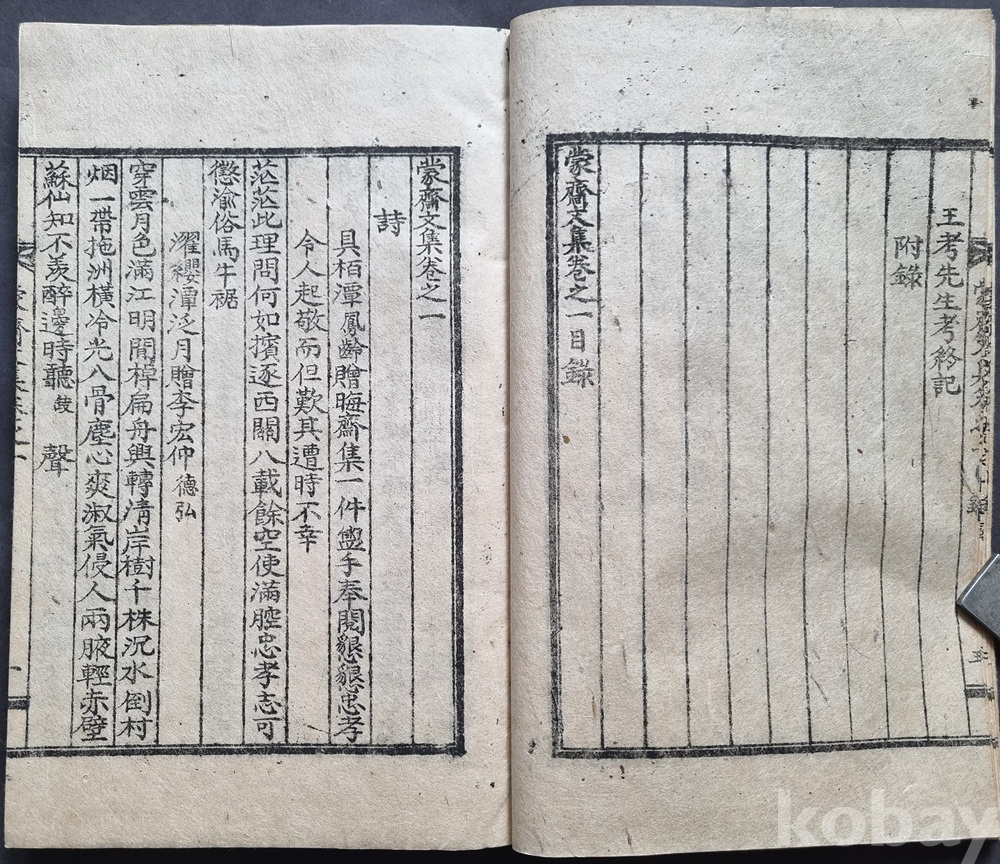 王考先生考終記
附錄
蒙齋文集卷之一目錄
蒙齋文集卷之一
詩
具栢潭鳳齡贈晦齋集一件盥手奉閱懇懇忠孝
令人起敬而但歎其遭時不幸
茫茫此理問何如擯逐西關八載餘空使滿腔忠孝志可
懲渝俗馬牛裾
濯纓潭泛月贈李宏仲德弘
穿雲月色滿江明閒棹扁舟興轉淸岸樹千株沉水倒村
烟一帶拖洲橫冷光八骨塵心爽淑氣侵人兩腋輕赤壁
蘇仙知不羨醉邊時聽 聲
kobay